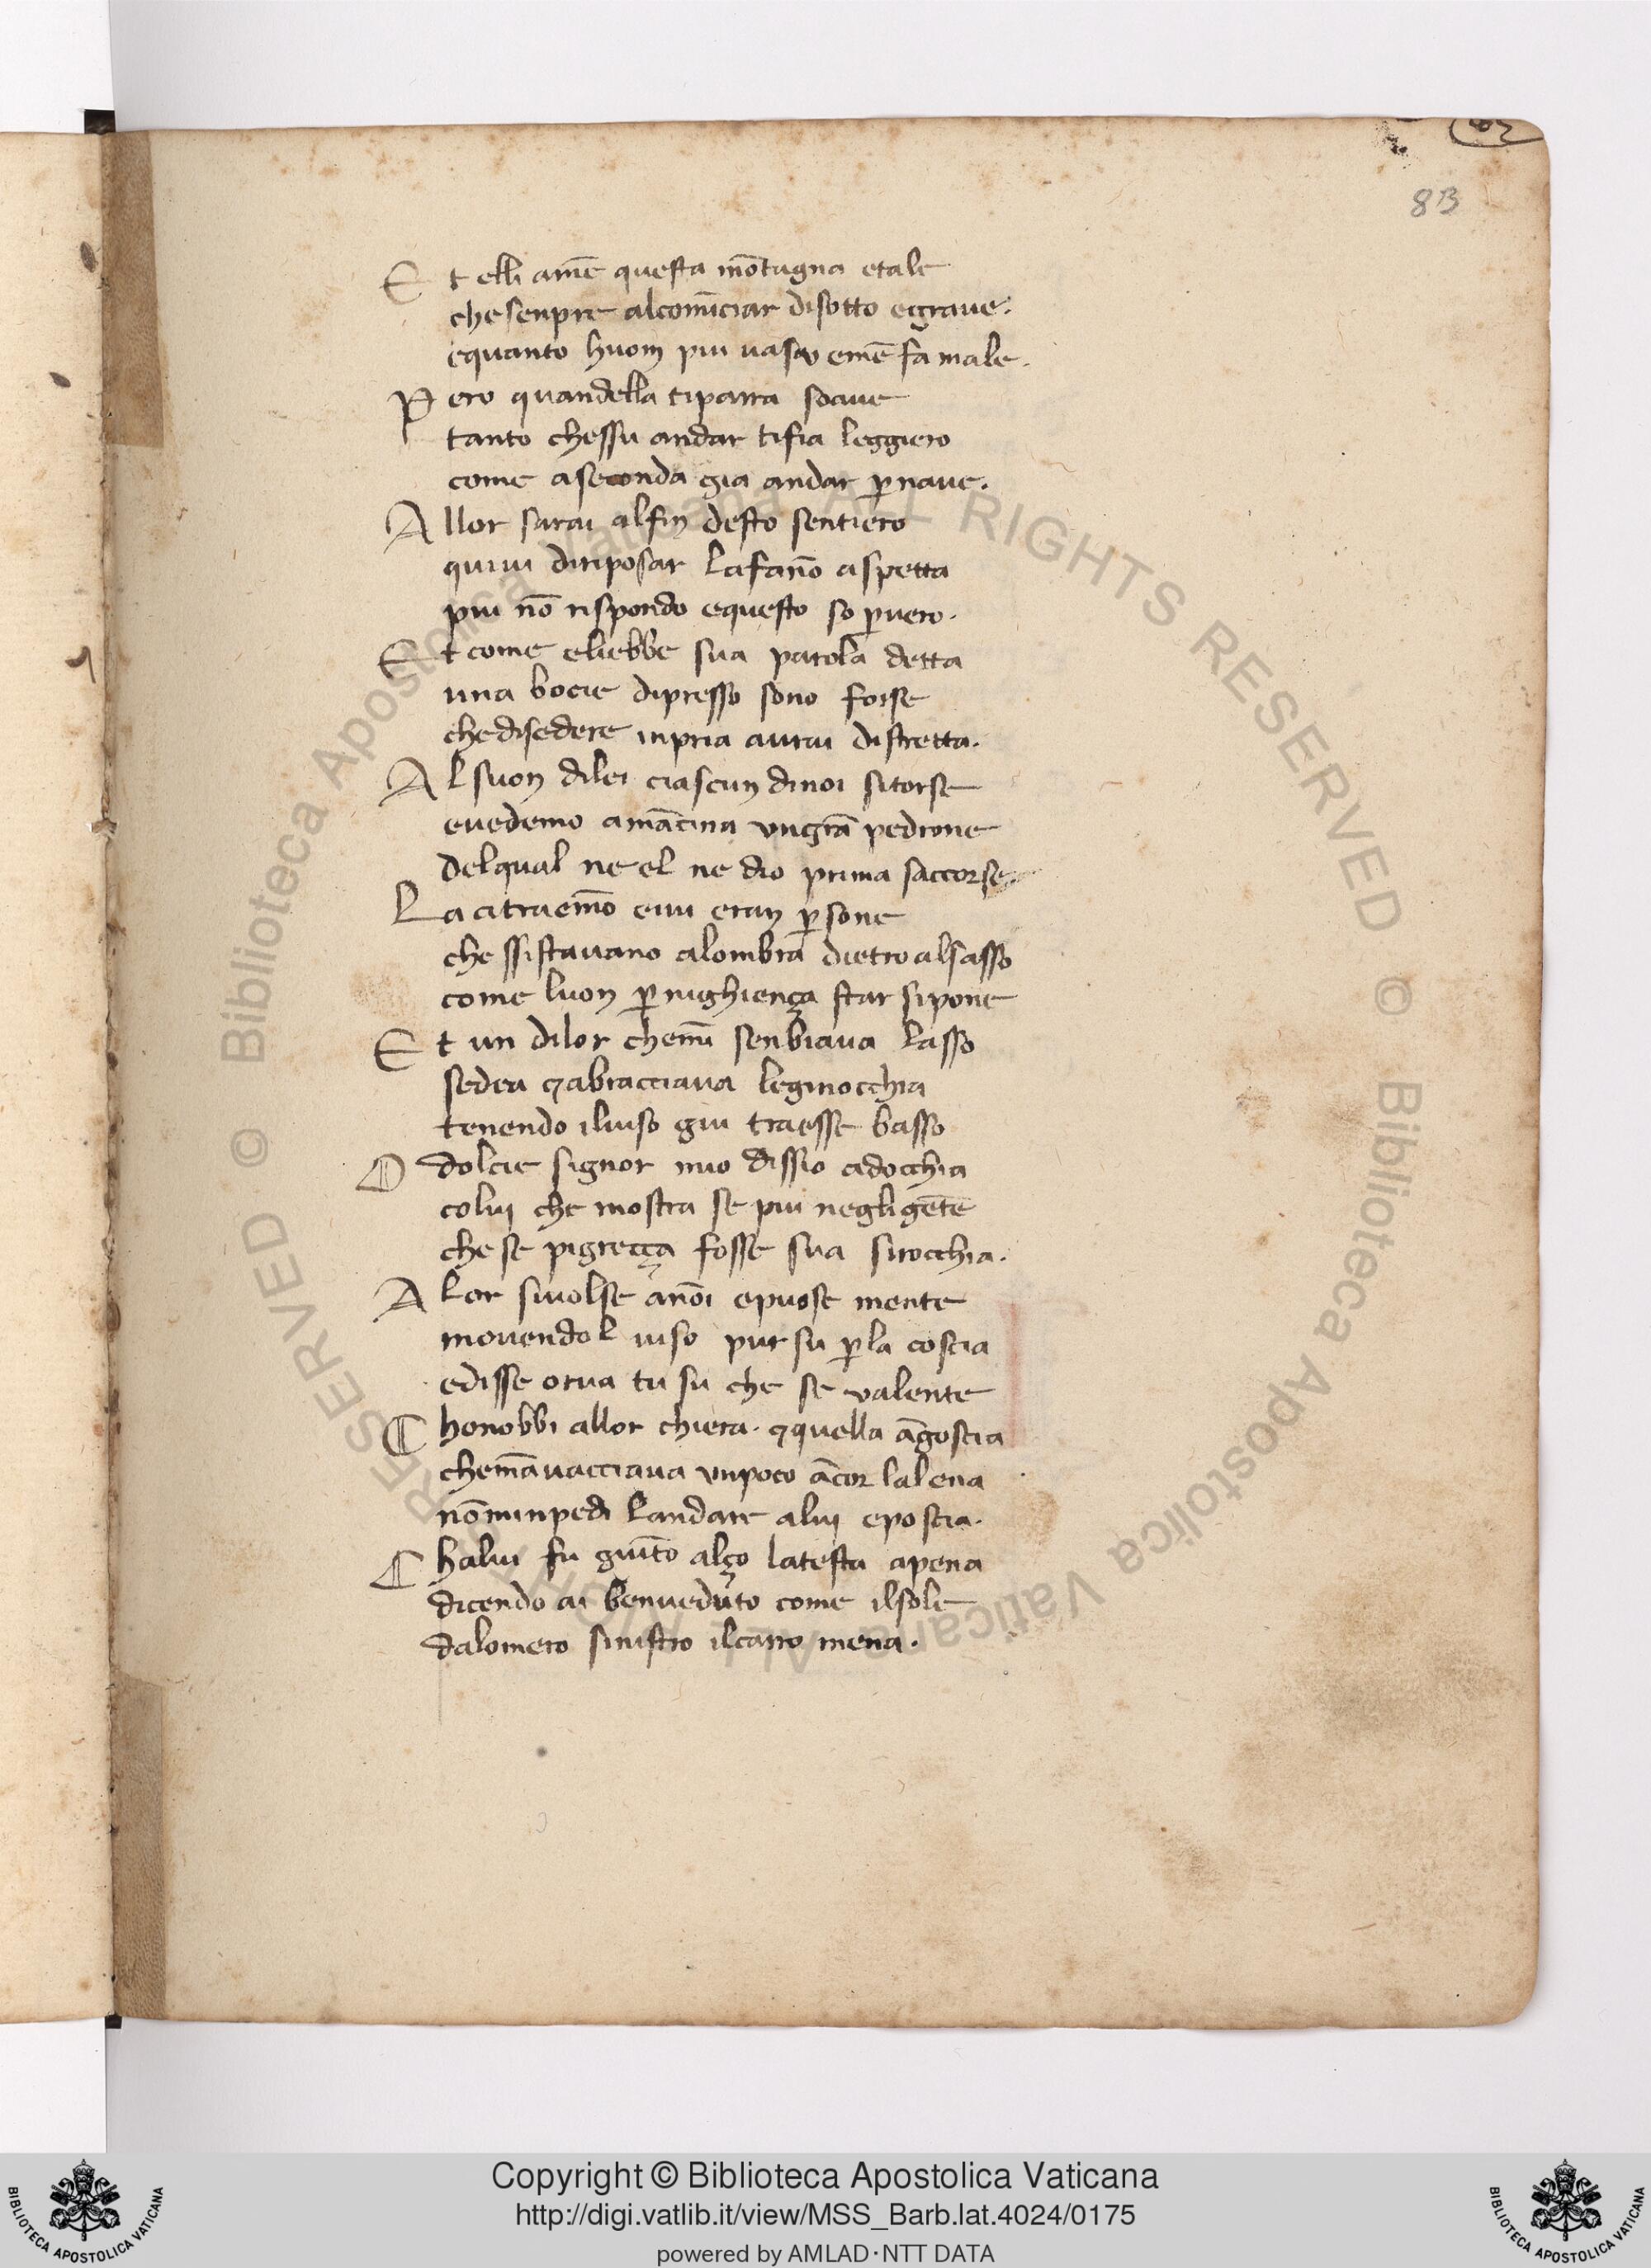 83
Et elli amē questa mōtagna etale
che senpre alcomīciar disotto egraue.
equanto huom piu uasu emē fa male.
Pero quandella tiparra soaue
tanto chessu andar tifia leggiero
come aseconda gia andar ꝑnaue.
Allor sarai alfin desto sentiero
quiui diriposar lafāno aspetta
piu nō rispondo equesto so ꝑuero.
Et come eliebbe sua parola detta
una bocie dipresso sono forse
chedisedere inpria aurai distretta.
Al suon dilei ciascun dinoi sitorse
euedemo amācina vngrā pedrone
delqual ne el ne dio prima saccorse
La ci traemo eiui eran ꝑsone
che ssistauano alombra dietro alsasso
come luon ꝑ nighiença star sipone
Et un dilor chemī senbiaua lasso
sedea ⁊abracciaua leginocchia
tenendo iluiso giu traesse basso
O dolcie signor mio dissio adocchia
colui che mostra se piu negligēte
che se pigreçça fosse sua sirocchia.
Alor siuolse anōi epuose mente
mouendol uiso pur su ꝑla coscia
edisse orua tu su che se valente
Chonobbi allor chiera. ⁊quella āgoscia
chemāuacciaua vnpoco ācor lalena
nōminpedi landare alui eposcia.
Chalui fu giūto alço latesta apena
dicendo ai benueduto come ilsole
dalomero sinistro ilcarro mena.
Copyright © Biblioteca Apostolica Vaticana
http://digi.vatlib.it/view/MSS_Barb.lat.4024/0175
powered by AMLAD·NTT DATA
BIBLIOTECA APOSTOLICA VATICANA
BIBLIOTECA APOSTOLICA VATICANA
© Biblioteca Apostolica Vaticana ALL RIGHTS RESERVED © Biblioteca Apostolica Vaticana ALL RIGHTS RESERVED